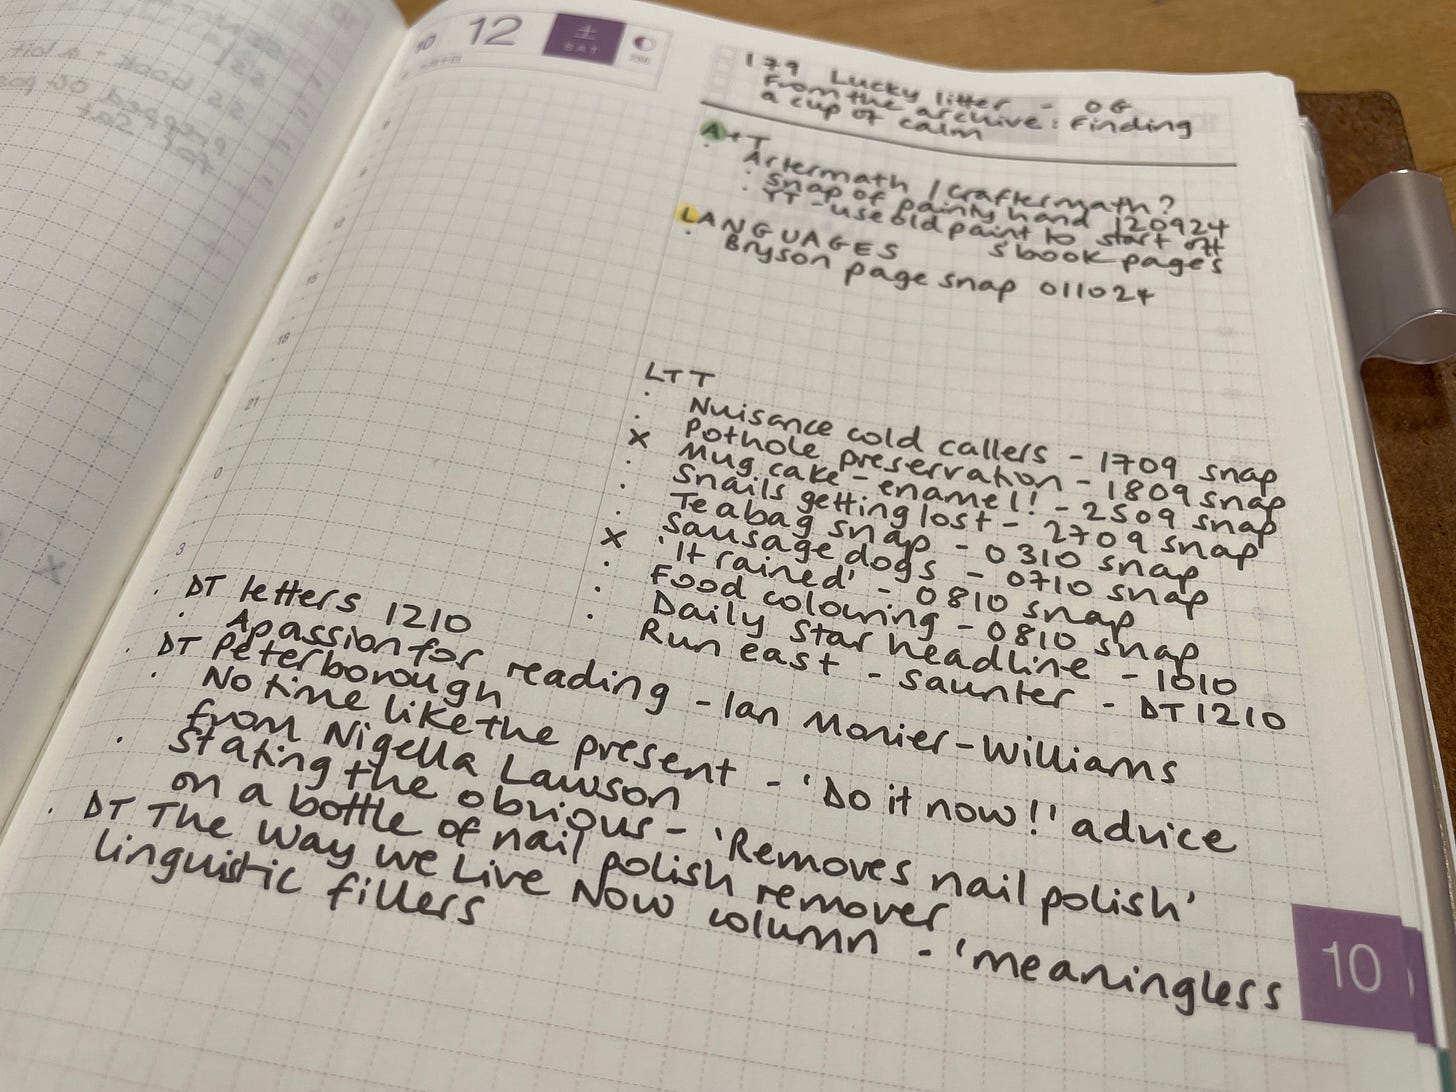 10 12 土 SAT 286
179 Lucky litter - OG
From the archive: Finding
a cup of calm
A+T
· Aftermath / Craftermath?
· Snap of painty hand 120924
· YT - use old paint to start off
s'book pages
LANGUAGES
· Bryson page snap 011024
LTT
· Nuisance cold callers - 1709 snap
· Pothole preservation - 1809 snap
x Mug cake - enamel! - 2509 snap
· Snails getting lost - 2709 snap
· Teabag snap - 0310 snap
· Sausage dogs - 0710 snap
x 'It rained' - 0810 snap
· Food colouring - 0810 snap
· Daily Star headline - 1010
· Run east - saunter - DT 1210
· DT letters 1210
· A passion for reading - Ian Monier-Williams
· DT Peterborough
· No time like the present - 'Do it now!!' advice
from Nigella Lawson
· Stating the obvious - 'Removes nail polish'
on a bottle of nail polish remover
· DT The Way We Live Now column - 'meaningless
linguistic fillers
9
12
15
18
21
0
3
10